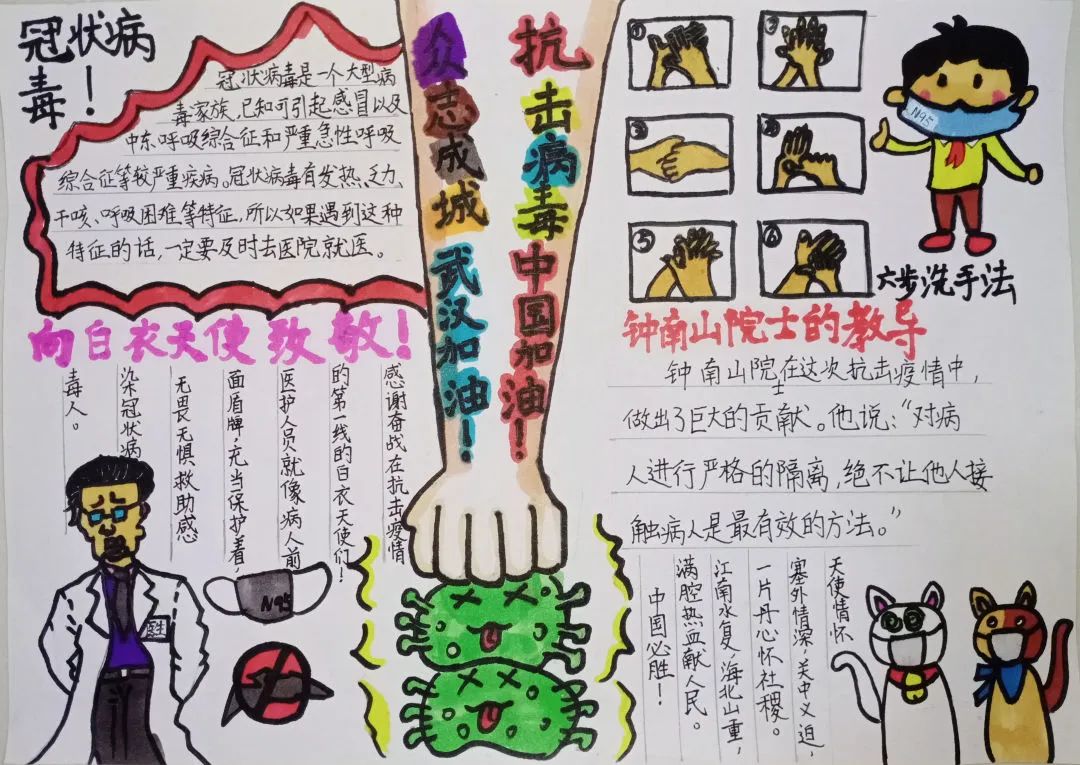 冠状病
毒！
冠状病毒是一个大型病
毒家族，已知可引起感冒以及
中东呼吸综合征和严重急性呼吸
综合征等较严重疾病。冠状病毒有发热、乏力、
干咳、呼吸困难等特征，所以如果遇到这种
特征的话，一定要及时去医院就医。
众志成城 武汉加油！
抗击病毒 中国加油！
①
②
③
④
⑤
⑥
N95
六步洗手法
向白衣天使致敬！
感谢奋战在抗击疫情
的第一线的白衣天使们！
医护人员就像病人前
面盾牌，充当保护着，
无畏无惧救助感
染冠状病
毒人。
医生
N95
钟南山院士的教导
钟南山院士在这次抗击疫情中，
做出了巨大的贡献。他说：“对病
人进行严格的隔离，绝不让他人接
触病人是最有效的方法。”
天使情怀
塞外情深，关中义迫，
一片丹心怀社稷。
江南水复，海北山重，
满腔热血献人民。
中国必胜！